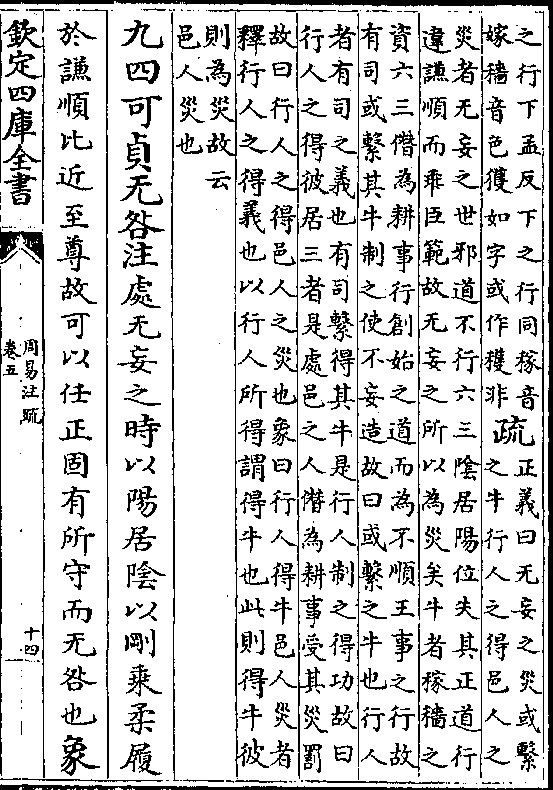 之行下孟反下之行同稼音
嫁穡音色獲如字或作穫非
疏
正義曰无妄之災或繫
之牛行人之得邑人之
災者无妄之世邪道不行六三陰居陽位失其正道行
違謙順而乖臣範故无妄之所以為災矣牛者稼穡之
資六三僭為耕事行創始之道而為不順王事之行故
有司或繫其牛制之使不妄造故曰或繫之牛也行人
者有司之義也有司繫得其牛是行人制之得功故曰
行人之得彼居三者是處邑之人僭為耕事受其災罰
故曰行人之得邑人之災也象曰行人得牛邑人災者
釋行人之得義也以行人所得謂得牛也此則得牛彼
則為災故云
邑人災也
九四可貞无咎注處无妄之時以陽居陰以剛乘柔履
於謙順比近至尊故可以任正固有所守而无咎也象
欽定四庫全書
周易注疏
卷五
十四